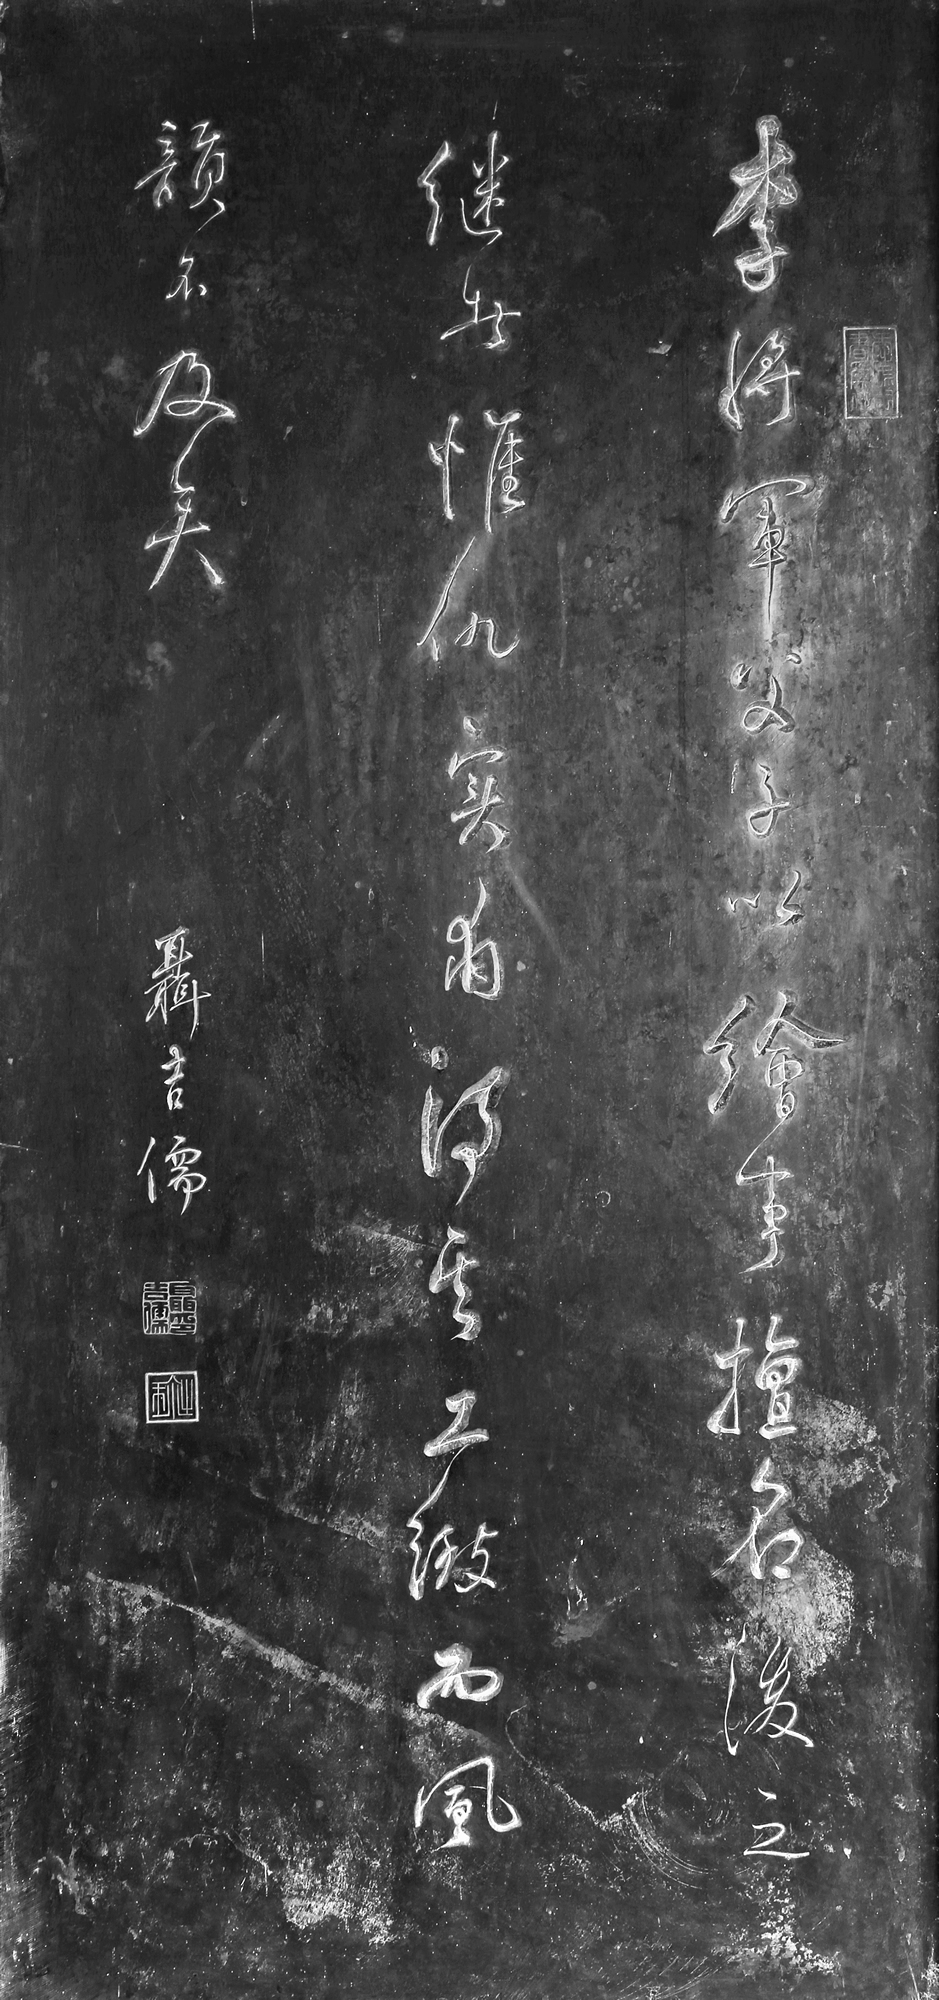 李將軍父子以繪事擅名後之
继者惟仇實甫得其工緻而風
韻不及矣
聶吉儒